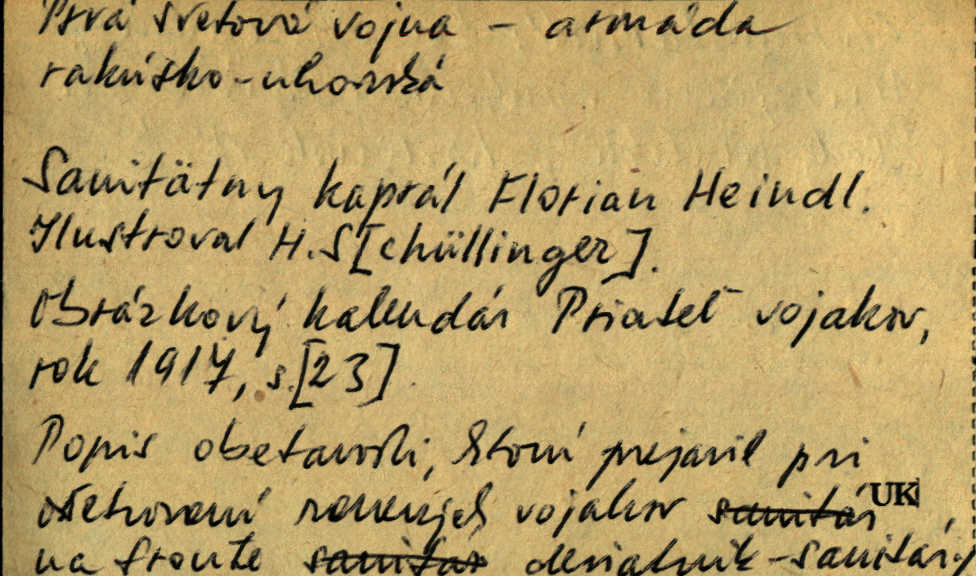 Prvá svetová vojna - armáda
rakúsko-uhorská
Sanitätny kaprál Florian Heindl.
Ilustroval H.S[chüllinger].
Obrázkový kalendár Priateľ vojakov,
rok 1917, s.[23].
Popis obetavosti, ktorú prejavil pri
ošetrovaní ranených vojakov sanitár UK
na fronte sanitár desiatnik-sanitár,